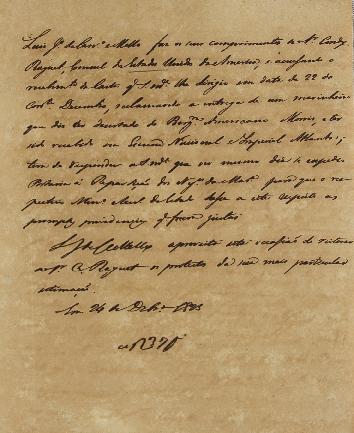 Luis J.e de Carv.o e Mello faz os seus comprimentos a Mr Condy
Raguet, Consul de Estados Unidos da America, e accusando o
recebim.to da carta q' S. m.ce lhe dirigio em data de 22 do
corr.e Dezembro, reclamando a entrega de um marinheiro
que diz ter desertado do Berg.m Americano Morris, e ter
sido recebido na Nacional e Imperial
tem de responder a S. m.ce que no mesmo dia se expedio
Portaria á Repartição dos Neg.os da Mar.a para que o res-
pectivo Min.o Secr.o de Estado désse a este respeito as
promptas providencias q' fossem justas
L. J. de C. e Mello aproveita esta occasião de reiterar
ao Sr. C. Raguet os protestos da sua mais particular
estimação.
Em 24 de Dezb.o 1823